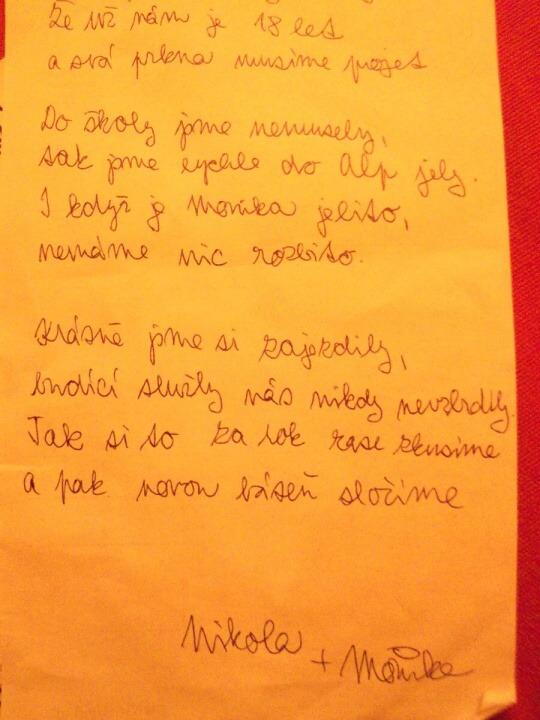 Že už nám je 18 let
a svá prkna musíme projet
Do školy jsme nemusely,
tak jsme rychle do Alp jely.
I když je Monika jelito,
nemáme nic rozbito.
Krásně jsme si zajezdily,
budící služby nás nikdy nevzbudily.
Tak si to za rok zase zkusíme
a pak novou báseň složíme
Nikola
+ Monika